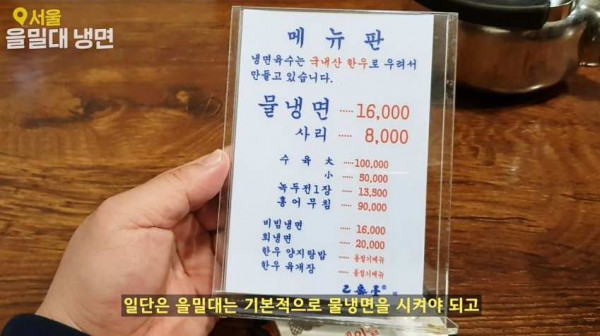 서울
을밀대 냉면
메뉴판
냉면육수는 국내산 한우로 우려서
만들고 있습니다.
물냉면 ····· 16,000
사리 ····· 8,000
수육 大 ····· 100,000
小 ····· 50,000
녹두전1장 ····· 13,500
홍어무침 ····· 90,000
비빔냉면 ····· 16,000
회냉면 ····· 20,000
한우 양지탕밥 ····· 동절기메뉴
한우 육개장 ····· 동절기메뉴
일단은 을밀대는 기본적으로 물냉면을 시켜야 되고